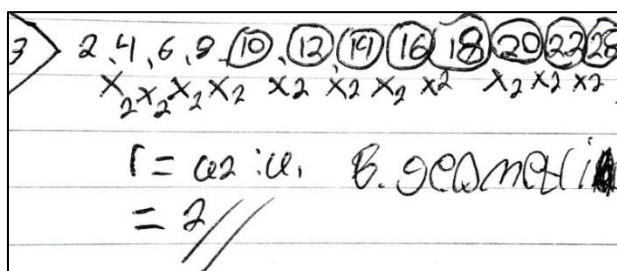 3) 2, 4, 6, 8, 10, 12, 14, 16, 18, 20, 22, 28
x2 x2 x2 x2 x2 x2 x2 x2 x2 x2 x2
r = u2 : u1 B. geometri
= 2 //